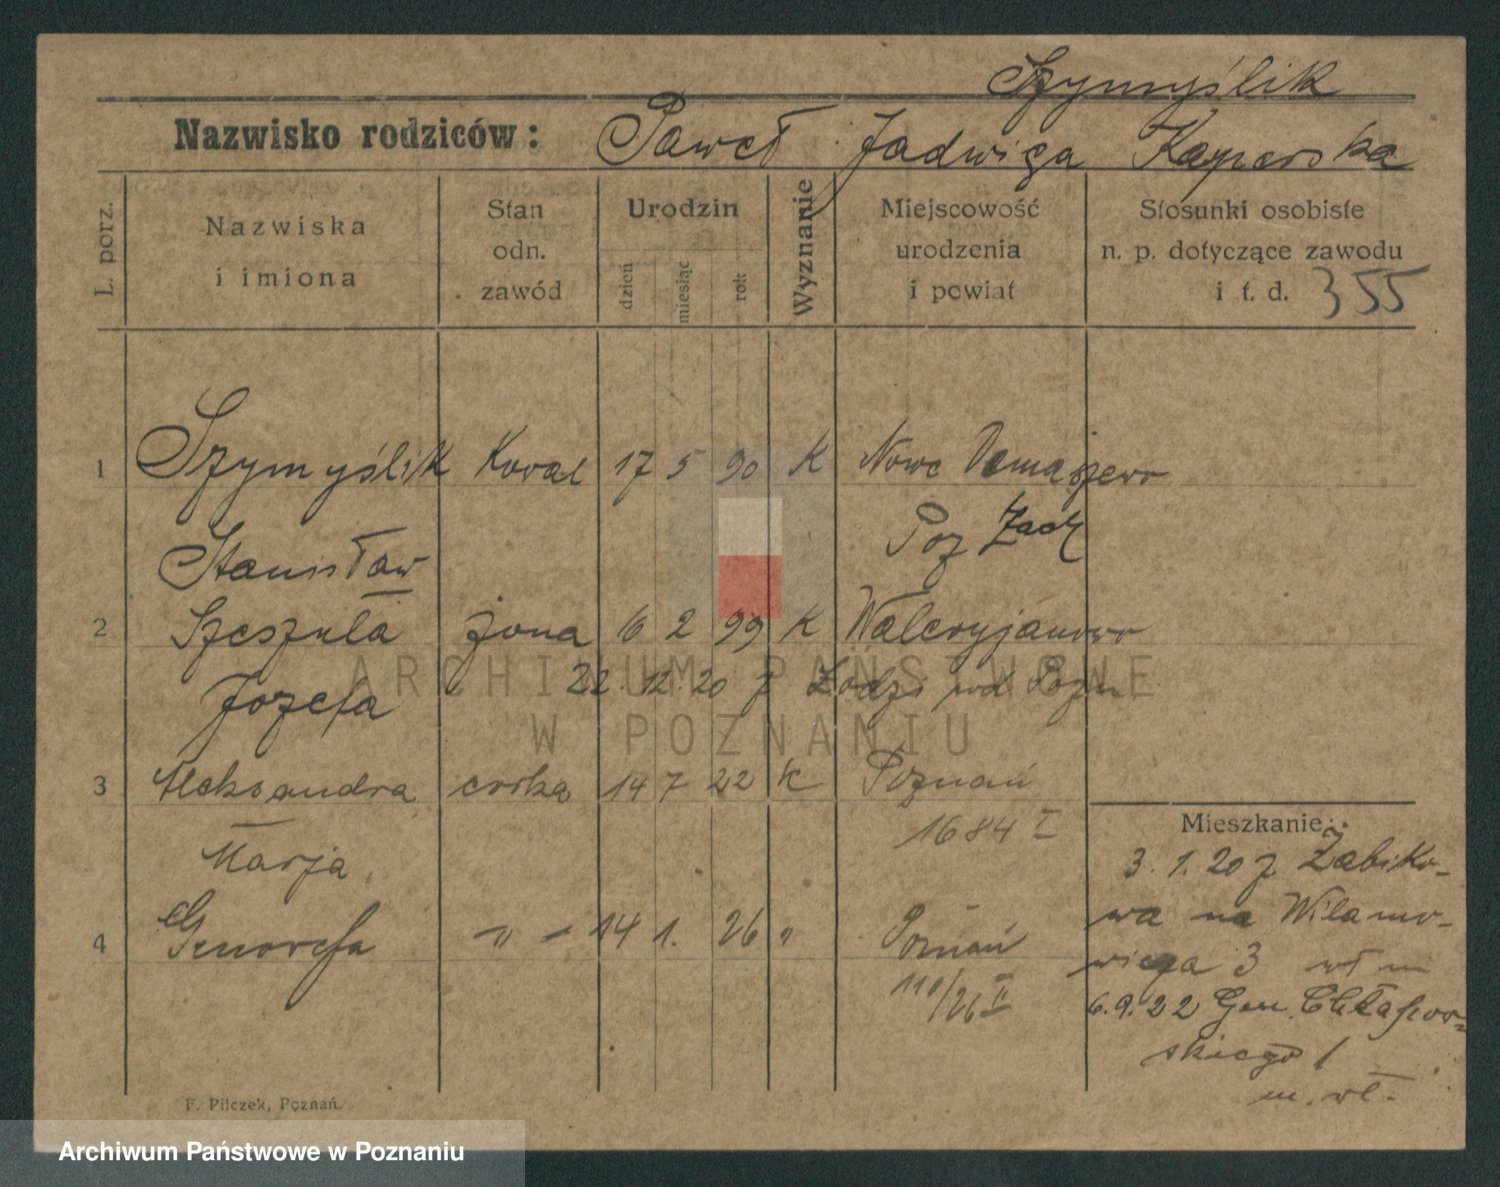 Szymyślik
Nazwisko rodziców: Paweł Jadwiga Kasperska
L. porz.
Nazwiska i imiona
Stan odn. zawód
Urodzin
dzień
miesiąc
rok
Wyznanie
Miejscowość urodzenia i powiat
Stosunki osobiste n. p. dotyczące zawodu i t. d. 355
1 Szymyślik Kowal 17 5 90 K Nowe
Stanisław Poz Zach
2 Szeszuła żona 16 2 99 K Waleryjanowo
Józefa 22. 12. 20 z Łodzi
3 Aleksandra córka 14 7 22 K Poznań
Marja 1684 I
4 Genowefa - „ - 14 1. 26 „ Poznań
110/26 II
Mieszkanie:
3. 1. 20 z Żabiko-
wa na Wilamo-
wicza 3
6. 9. 22 Gen. Chłapow-
skiego 1
m. wł.
F. Pilczek, Poznań.
ARCHIWUM PAŃSTWOWE
W POZNANIU
Archiwum Państwowe w Poznaniu